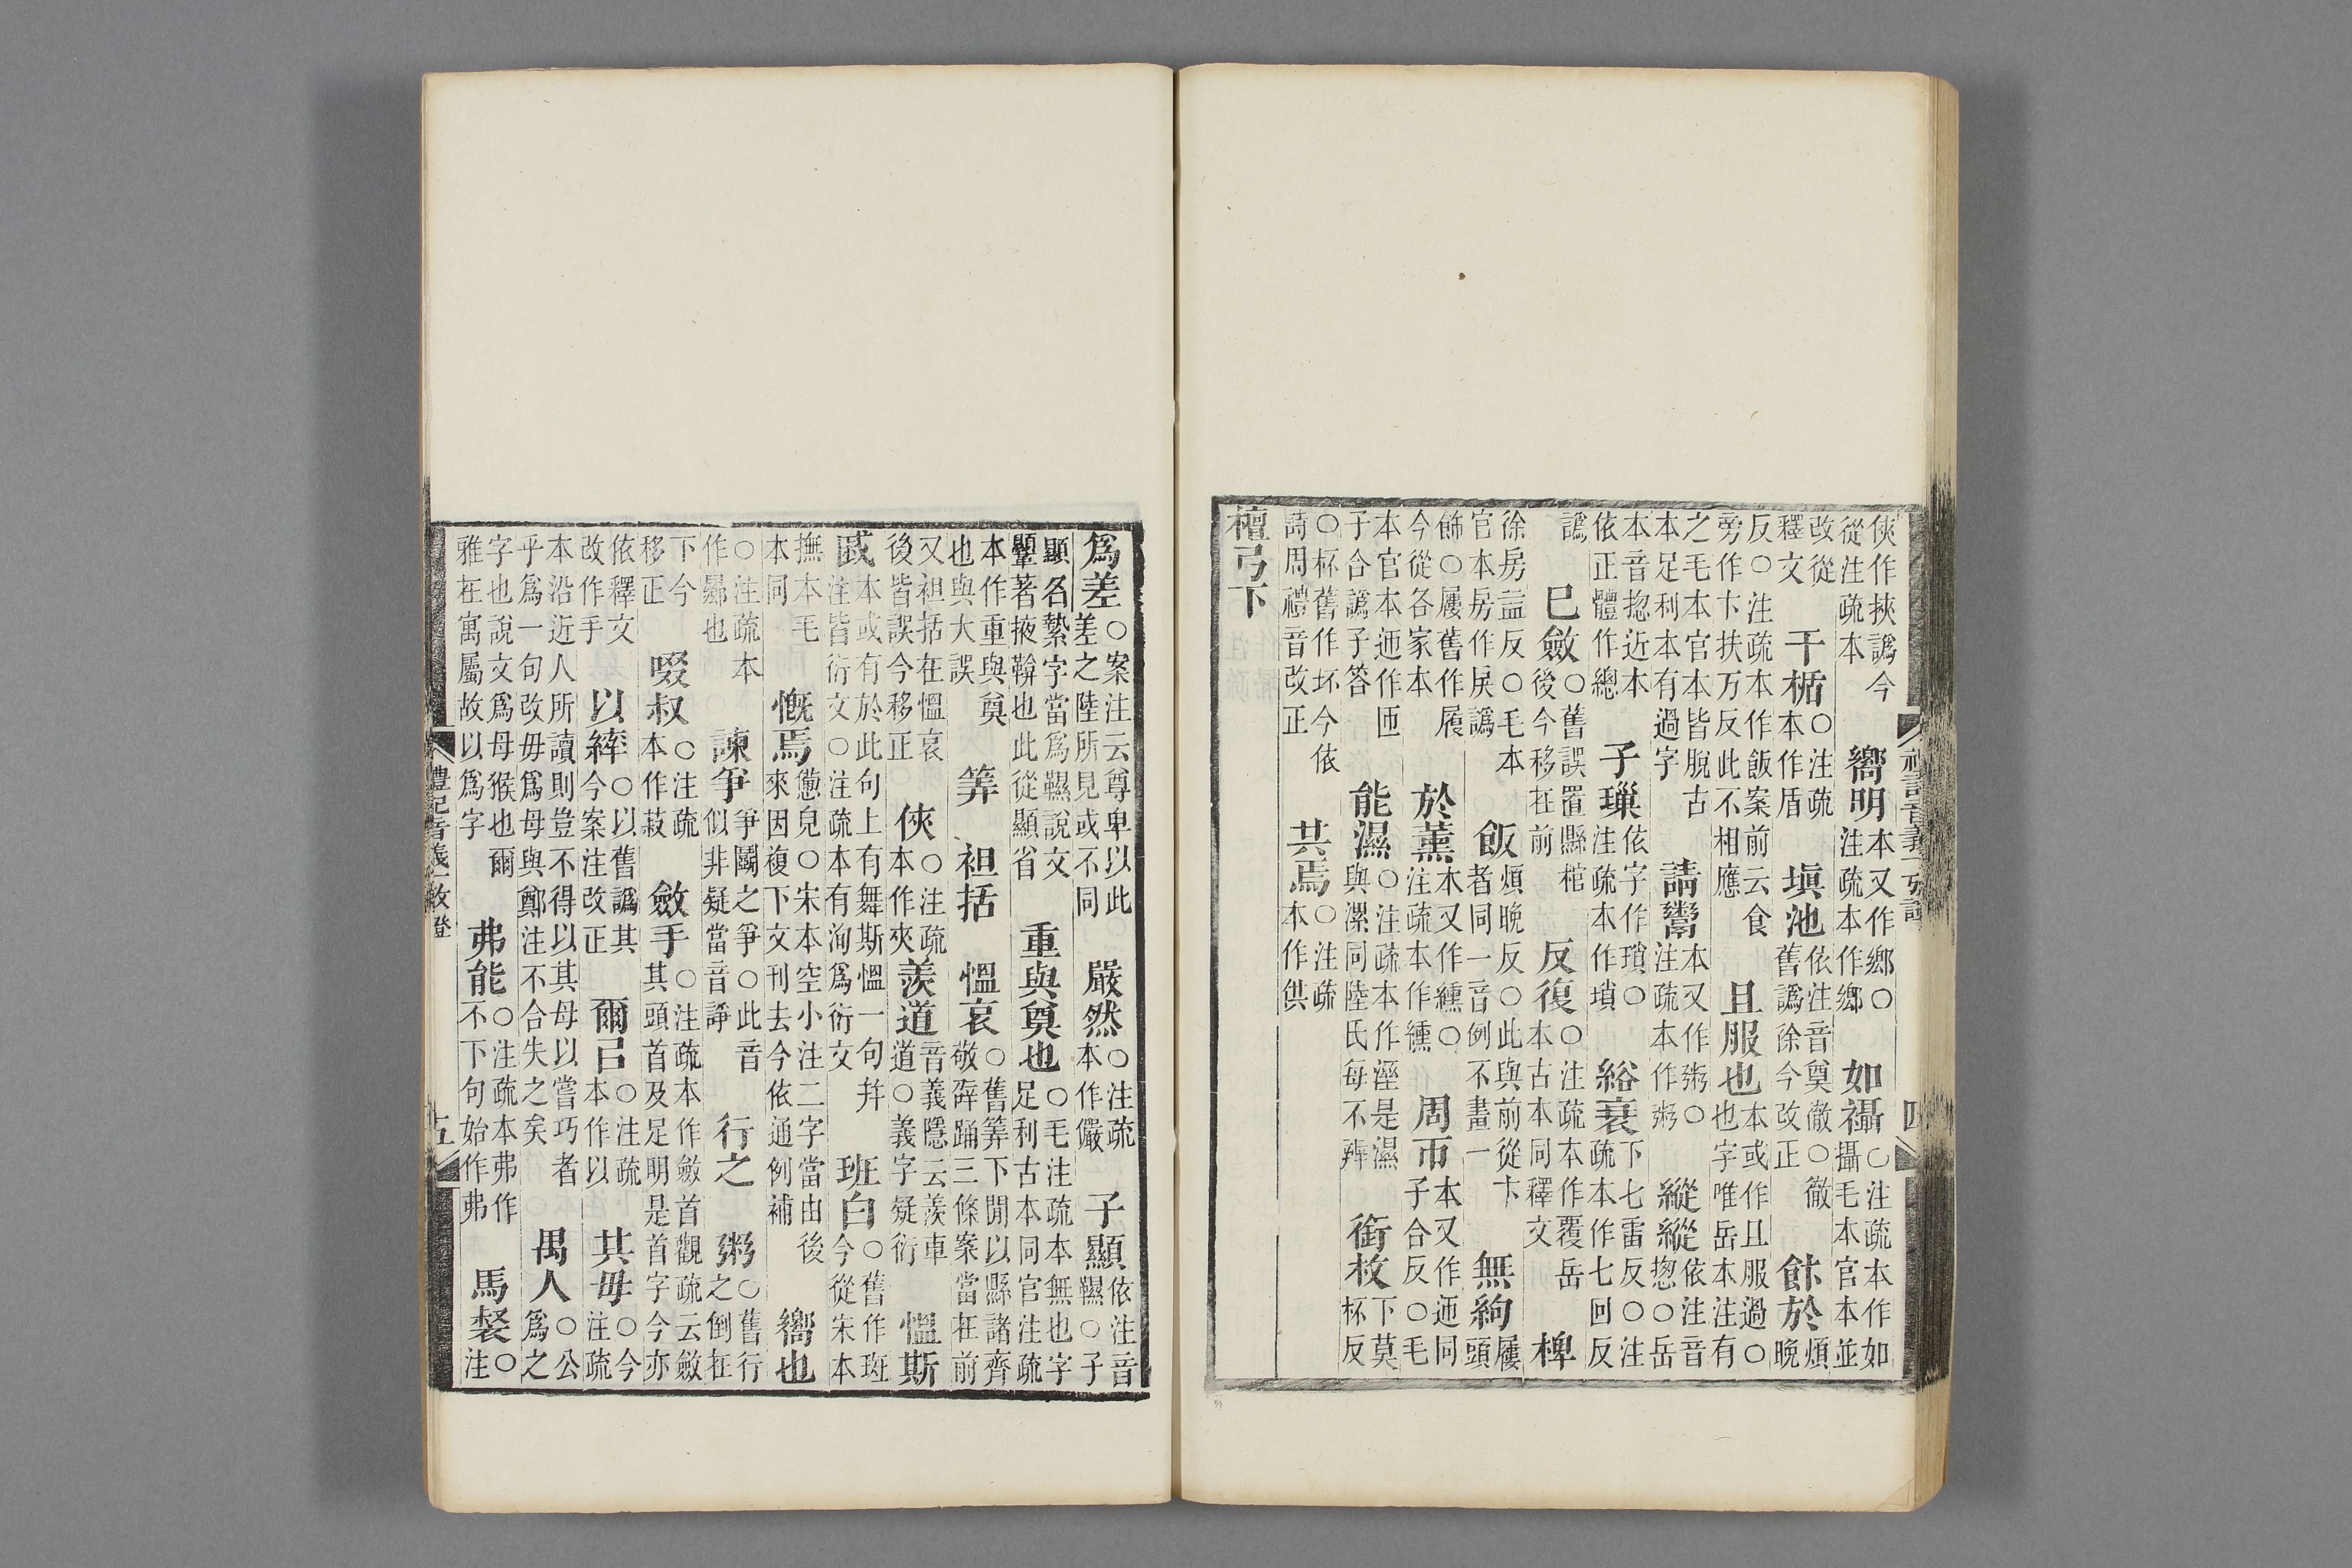 俠作挾譌今
從注疏本　嚮明本又作鄉○注疏本作鄉　如襵○注疏本作如攝毛本官本並
改從釋文　干楯○注疏本作盾　塡池依注音奠徹○徹舊譌徐今改正　飰於煩晚
反○注疏本作飯案前云食旁作卞扶万反此不相應　且服也本或作且服過○也字唯岳本注有
之毛本官本皆脫古本足利本有過字　請鬻本又作粥○注疏本作粥　縱縱依注音揔○岳
本音揔近本依正體作總　子璅依字作瑣○注疏本作瑣　綌衰下七雷反○注疏本作七回反
譌　巳斂○舊誤置縣棺後今移在前　反復○注疏本作覆岳本古本同釋文　椑
徐房益反○毛本官本房作戾譌　飯煩晚反○此與前從卞者同一音例不畫一　無絇屨頭
飾○屨舊作履今從各家本　於薰本又作纁○注疏本作纁　周帀本又作迊同子合反○毛
本官本迊作匝子合譌子答　能濕○注疏本作溼是濕與漯同陸氏每不辨　銜枚下莫杯反
○杯舊作坏今依詩周禮音改正　共焉○注疏本作供
檀弓下
禮記音義一攷證　四
爲差○案注云尊卑以此差之陸所見或不同　嚴然○注疏本作儼　子顯依注音韅○子
顯名縶字當爲韅說文顯著掖鞥也此從顯省　重與奠也○毛注疏本無也字足利古本同官注疏
本作重與奠也與大誤　筭　袒括　慍哀○舊筭下閒以縣諸齊敬辟踊三條案當在前
又袒括在慍哀後皆誤今移正　俠○注疏本作夾　羨道音義隱云羨車道○義字疑衍　慍斯
戚本或有於此句上有舞斯慍一句幷注皆衍文○注疏本有洵爲衍文　班白○舊作斑今從宋本
撫本毛本同　慨焉憊皃○宋本空小注二字當由後來因複下文刊去今依通例補　嚮也
○注疏本作曏也　諫爭爭鬭之爭○此音似非疑當音諍　行之　粥○舊行之倒在
下今移正　啜叔○注疏本作菽　斂手○注疏本作斂首觀疏云斂其頭首及足明是首字今亦
依釋文改作手　以綍○以舊譌其今案注改正　爾㠯○注疏本作以　其毋○今注疏
本沿近人所讀則豈不得以其母以嘗巧者乎爲一句改毋爲母與鄭注不合失之矣　禺人○公爲之
字也說文爲母猴也爾雅在寓屬故以爲字　弗能○注疏本弗作不下句始作弗　馬褧○注
禮記音義一攷證　五